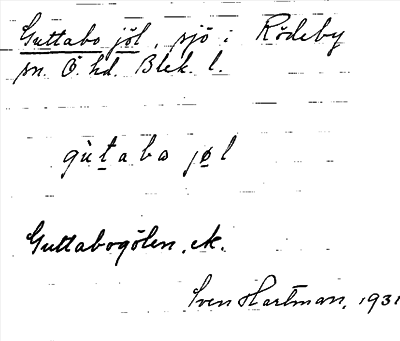 Guttabo jöl, sjö i Rödeby
sn. Ö. hd. Blek. l.
gùtabo jøl
Guttabogölen, ek.
Sven Hartman, 1931